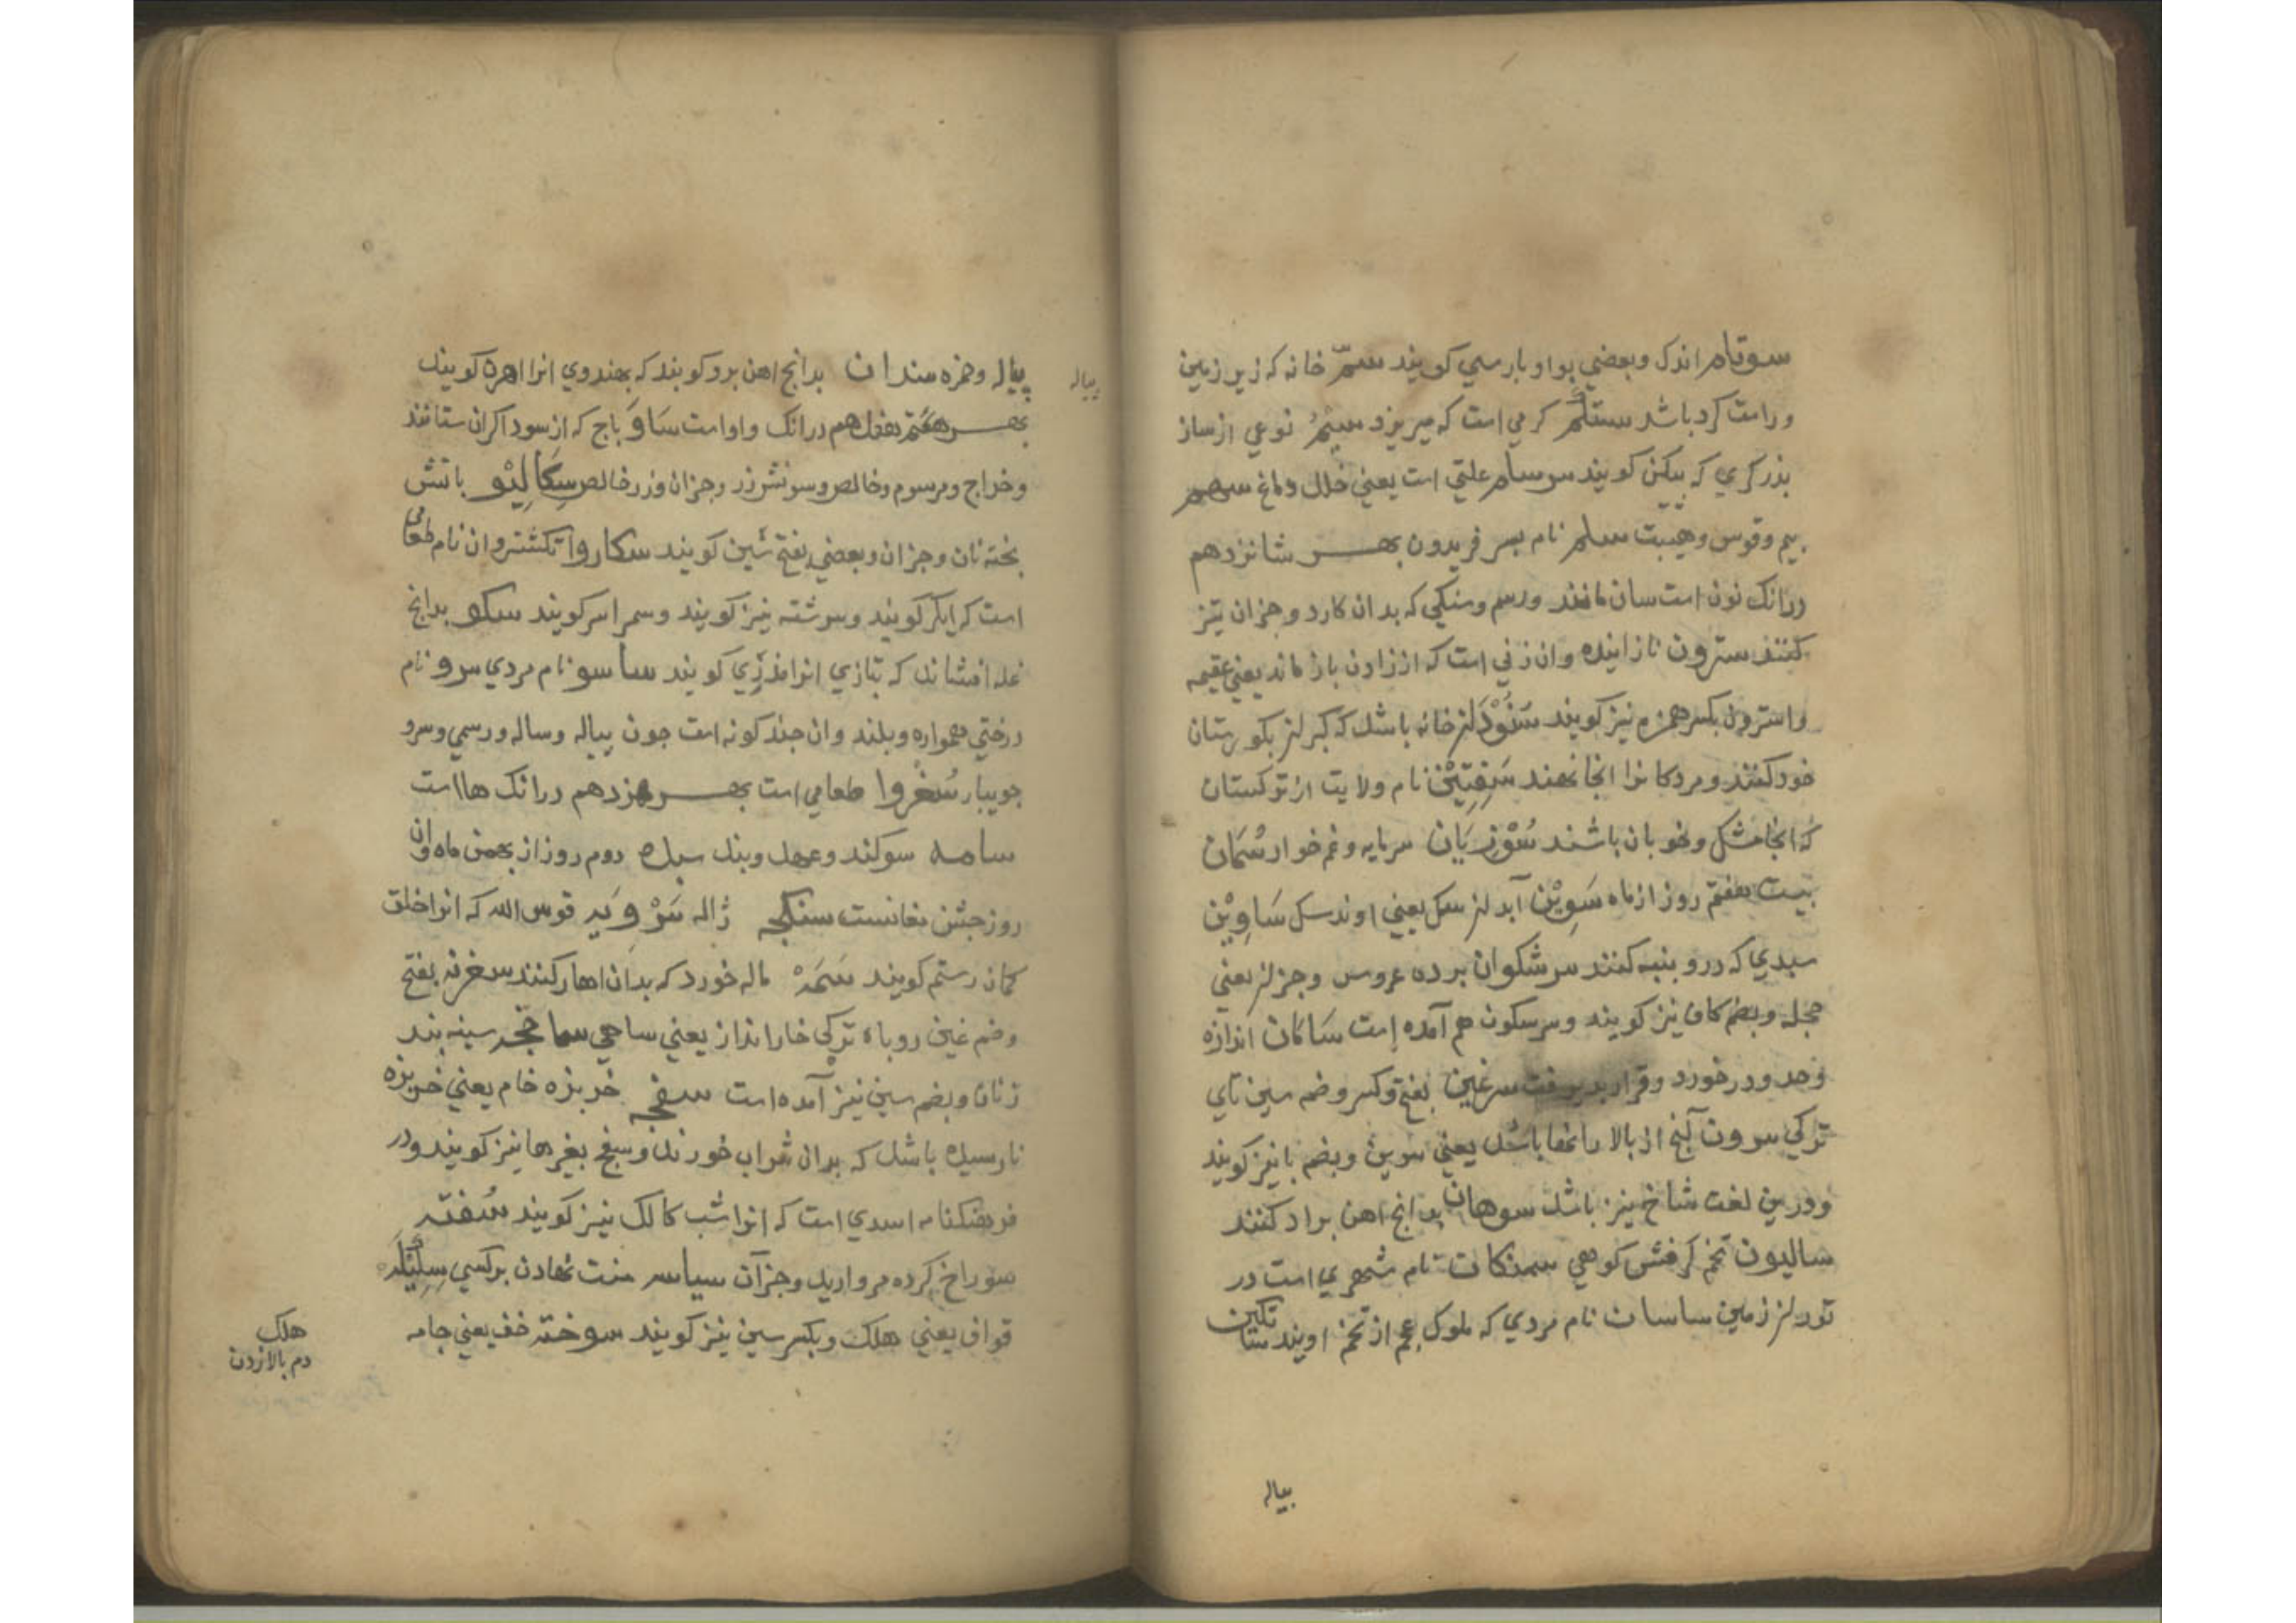 سوتام اندک وبعضي بواو بارسي کویند سمّ خانه که زیر زمین
وراست کرد باشد ستلم کرمي است که میریزد سیم نوعي ازساز
بذرکري که بیکن کویند سرسام علتي است یعني خلل دماغ سهم
بیم وقوس وهیبت سلم نام بسر فریدون بهر شانزدهم
درانک نون است سان مانند ورسم وسنکي که بدان کارد وجزان تیز
کنند سترون نازاینده وان زني است که اززادن باز ماند یعني عقیمه
واسترون بکسر همزه نیز کویند خانه باشد که کبران بکورستان
خود کنند ومردکانرا انجا نهند نام ولایت ازترکستان
که انجا مشک وخوبان باشند سُوْزِیَان سرمایه وغمخوار سُمَان
بیست هفتم روز ازماه سَوِیْن آبدان سک یعني اوند سک سَاوِیْن
سبدي که درو بنبه کنند سرشکوان برده عروس وجزان یعني
حجله وبضم کاف نیز کویند وسرسکون هم آمده است سَاکان اندازه
وحد ودرخورد وقرار سرغین بفتح وکسر وضمه سین ناي
ترکي سرون آنج از بالا باشد یعني سرین وبضم با نیز کویند
ودرین لغت شاخ نیز باشد سوهان بدانج اهن براد کنند
سالیون تخم کرفش کوهي سمنکان نام شهري است در
توران زمین ساسان نام مردي که ملوک عجم از تخم اویند
بیاله
بیاله
پیاله وخمزه سندان بدانج اهن برو کوبند که بهندوي انرا اهرن کویند
بهر هفتم هفدهم درانک واو است سَاوَ باج که ازسوداکران ستانند
وخراج ومرسوم وخالص وسونش زر وجزان وزر خالص سِکَالِیْو باتش
بخته نان وجزان وبعضي بفتح شین کویند سکاروا تکشتروان نام طعامي
است که ایکر کویند وسرشته نیز کویند وسمراسر کویند سکو بدانج
غله افشاند که بتازي انرا مذري کویند ساسو نام مردي سرو نام
درختي همواره وبلند وان جند کونه است جون بیاله وساله ورسمي وسرو
جویبار سُغْروا طعامي است بهر هزدهم درانک ها است
سامه سوکند وعهد وبند سده دوم روز از بهمن ماه وان
روز جشن مغانست سنکجه ژاله سَرْوِیه قوس الله که انرا خلق
کمان رستم کویند سَمَهْ ماله خورد که بدان اهار کنند سغرنه بفتح
وضم غین روباه ترکي خارانداز یعني ساهي سماخچه سینه بند
زنان وبضم سین نیز آمده است سفجه خربزه خام یعني خربزه
نارسیده باشد که بدان شراب خورند وسفج بغیر ها نیز کویند ودر
فرهنکنامه اسدي است که انرا شب کالک نیز کویند سُفته
سوراخ کرده مروارید وجزآن سپاسه منت نهادن برکسي
قواق یعني هلک وبکسر سین نیز کویند سوخته خف یعني جامه
هلک
دم بالا زدن